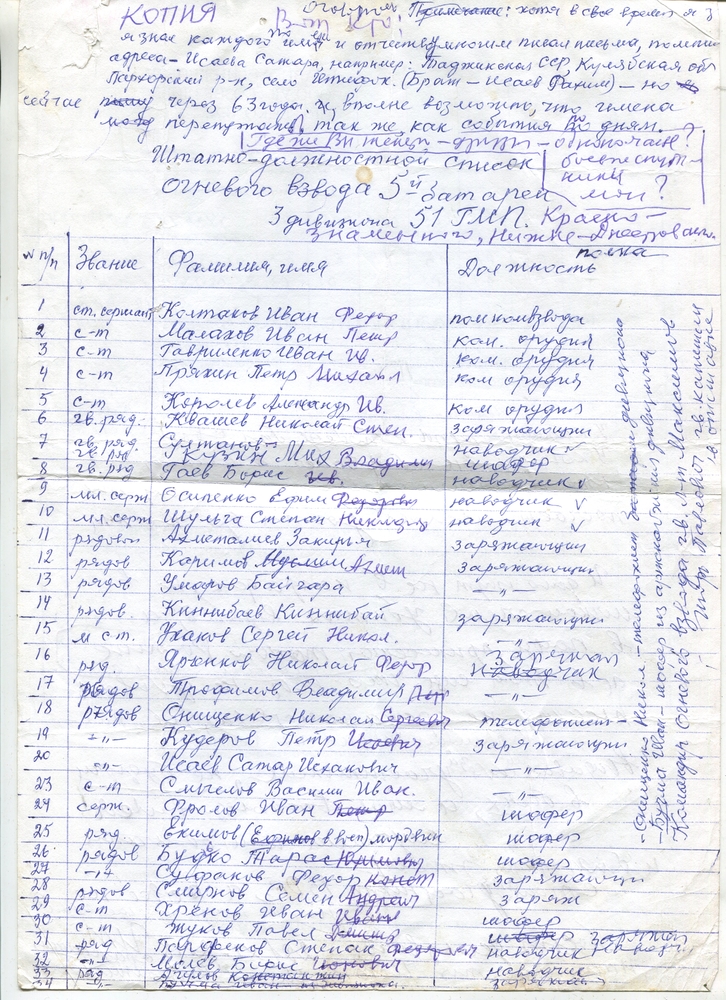 КОПИЯ
Вот кто,
Оговорюсь, Примечание: хотя в свое время я з
я знал каждого имя и отчество, многим писал письма, помнил
адреса – Исаева Сатара, например: Таджикская ССР, Кулябская обл
Пархорский р-н, село (Брат – Исаев Рахим) – но
сейчас пишу через 63 года. и, вполне возможно, что имена
мог перепутать, так же, как события по дням.
Где же Вы теперь – други – однополчане?
боевые спутники мои?
Штатно-должностной список
огневого взвода 5й батареи
3 дивизиона 51 ГМП. Красно-
знаменного, Нижне-Днестровского.
полка
№ п/п Звание Фамилия, имя Должность
1 ст. сержант Колтаков Иван Федор помкомвзвода
2 с-т Малахов Иван Петр ком. орудия
3 с-т Гавриленко Иван Ив. ком. орудия
4 с-т Пряхин Петр Михаил ком орудия
5 с-т Королев Александр Ив. ком орудия
6 гв. ряд. Квашев Николай Степ. заряжающий
7 гв. ряд Султанов наводчик v
гв. ряд Кузин Мих Владими шофер
8 гв. ряд Гаев Борис Ив. наводчик v
9 мл. серж Осипенко Ефим Федорович наводчик v
10 мл. серж Шульга Степан наводчик v
11 рядовой Ахметалиев Закирья заряжающий
12 рядов Каримов Муслим Ахмет заряжающий
13 рядов Умаров Байгара –"–
14 рядов. Киннибаев Киннибай заряжающий
15 м ст. Ухаков Сергей Никол. –"–
16 ряд. Николай Федор Заряжа наводчик
17 рядов Трофимов Владимир –"–
18 рядов Онищенко Николай Сергеевич телефонист –
19 –"– Кудеров Петр заряжающий
20 –"– Исаев Сатар Исхакович –"–
23 с-т Смыслов Василий Иван. –"–
24 серж. Фролов Иван Петр шофер
25 ряд. Екимов (Ефимов в восп) мордвин шофер
26 рядов Будко Тарас шофер
27 –"– Федор Конст заряжающ
28 рядов Смирнов Семен Андреич заряж
29 с-т Хренов Иван Ивани шофер
30 с-т Жуков Павел шофер заряжающ
31 ряд Парфенов Степан Федорович наводчик
32 –"– Борис наводчик
33 ряд Константин заряжающ
34 Иван
– Онищенко Никол – телефонист дивизиона
– Бугма Иван – шофер из дивизиона,
Командир Огневого взвода гв. л-т Максимов
Петр Павлович, гв. капитан
в отставке